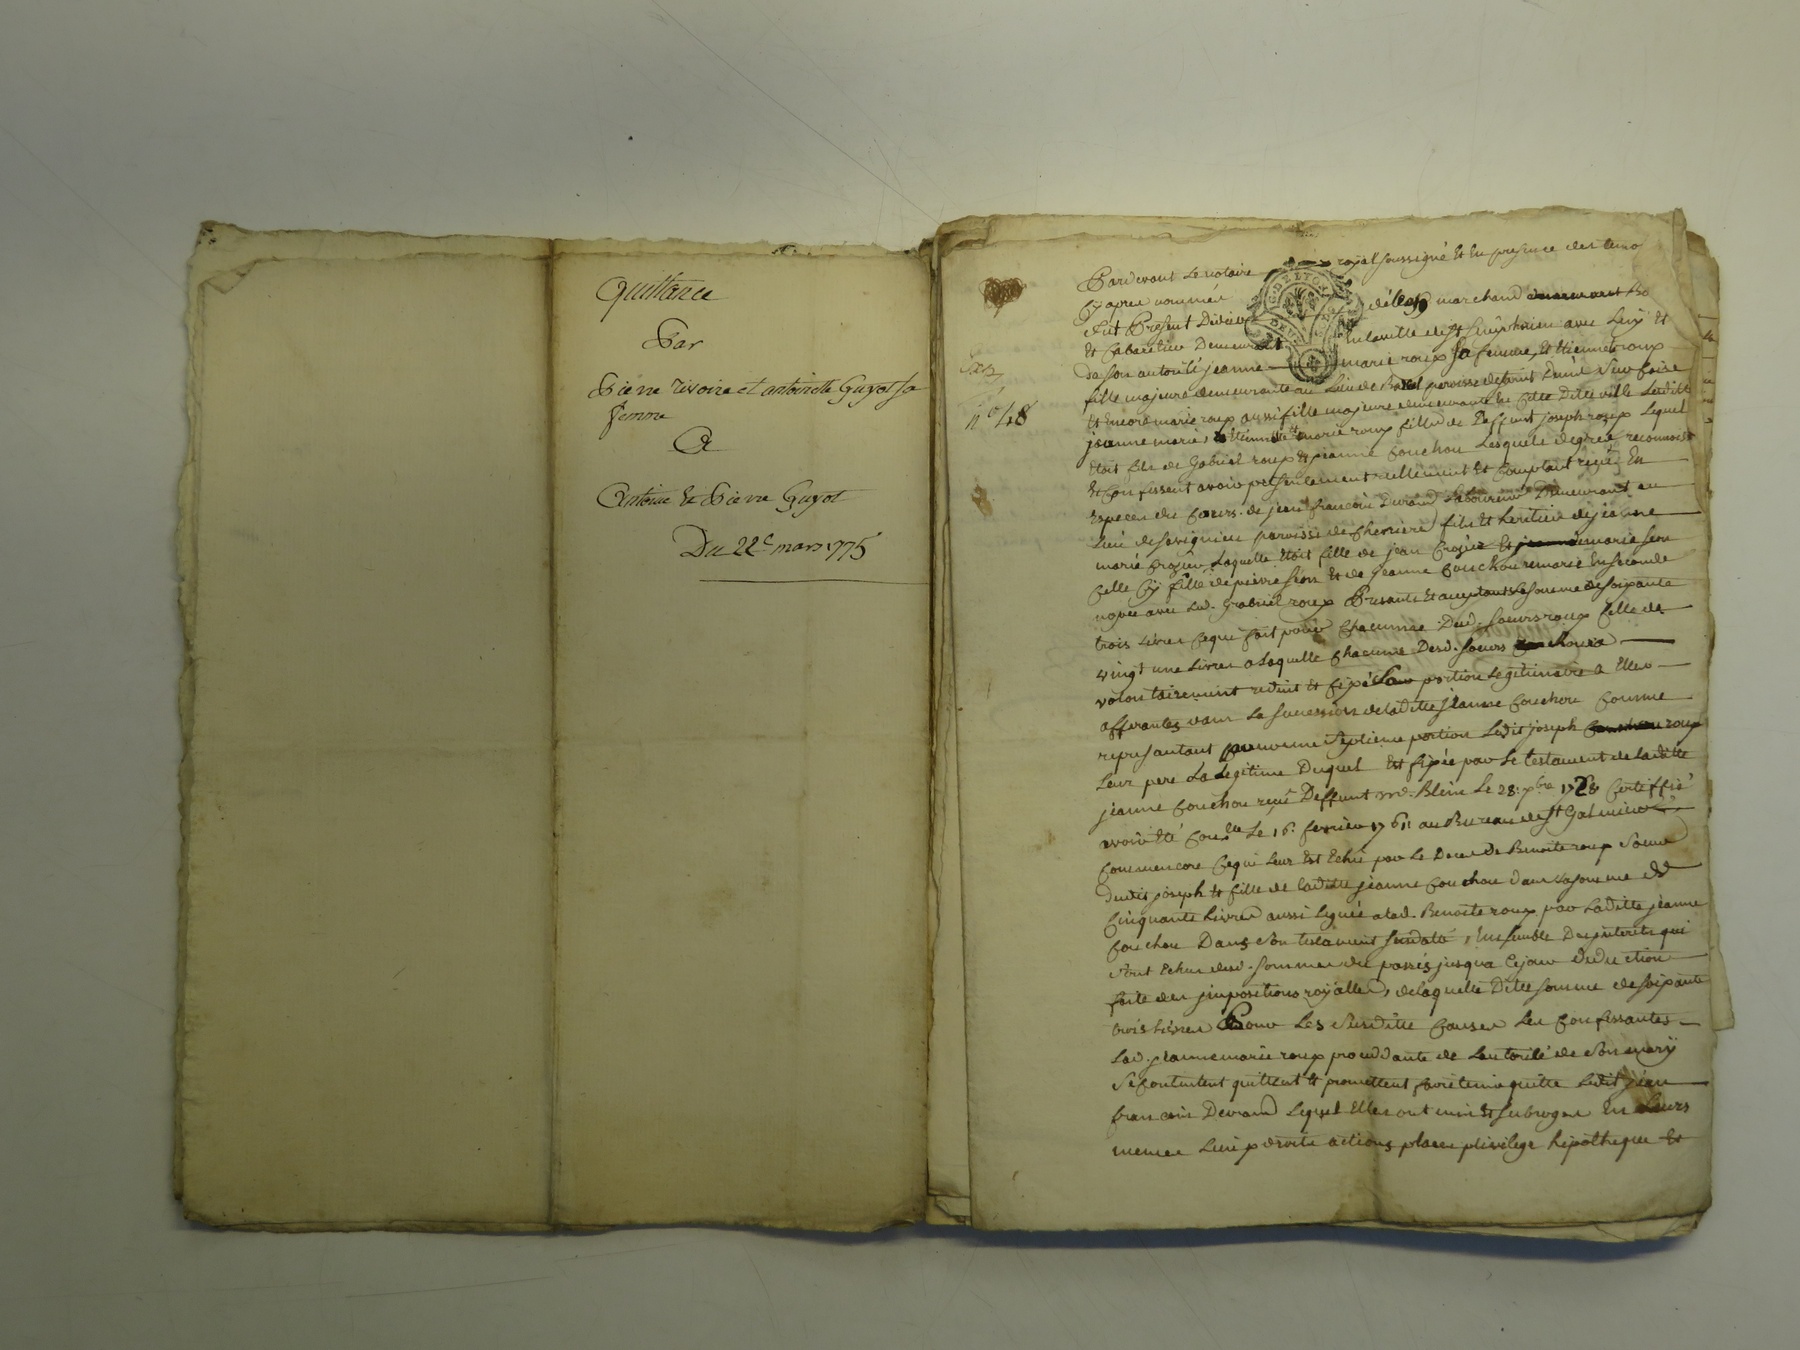 Quittance
Par
Pierre rivoire et antoinette Guyot sa
femme
A
Antoine Et Pierre Guyot
Du 22e mars 1775
n° 48
Pardevant Le notaire royal soussigné Et En presence des temo
Cy apres nommés
fut Present marchand
Et Cabaretier Demeurant En la ville de st simphorien avec Luy Et
de son autorité jeanne marie roux sa femme, Etiennette roux
fille majeure demeurante au Lieu de paroisse de saint Denis
Et Encore marie roux aussi fille majeure demeurante En Cette Ditte ville Lesditte
jeanne marie, Etiennette Et marie roux filles de Deffunt joseph roux Lequel
Etoit fils de Gabriel roux Et jeanne Couchou Lesquels de gré reconnoiss
Et Confessent avoir presentement reellement Et Comptant reçû En
Especes du Cours de jean francois Durand Laboureur Demeurant au
Lieu de Savignieu paroisse de Cherrier fils Et heritier de jeanne
marie Crozier Laquelle Etoit fille de jean Crozier Et marie
Celle Cy fille de pierre Et de jeanne Couchou remarié En seconde
nopce avec Led. Gabriel roux Presants Et acceptants La somme de soixante
trois Livres Ce qui fait pour Chacunne Desd. soeurs roux Celle de
vingt une Livres a Laquelle Chacune Desd. soeurs
volontairement reduit Et fixé Leur portion Legitimaire a Elles
afferantes dans La succession de laditte jeanne Couchou Comme
representant pour une portion Ledit joseph roux
Leur pere La Legitime Duquel Est fixée par Le testament de laditte
jeanne Couchou reçû Deffunt me. Blein Le 28. Certiffié
avoir Eté Conllé Le 16. fevrier 1761 au Bureau de st Galmier
Comm'encore Ce qui Leur Est Echû par Le Deces De Benoite roux soeur
Dudit joseph Et fille de laditte jeanne Couchou dans La somme de
Cinquante Livres aussi Leguée a lad. Benoite roux par Laditte jeanne
Couchou Dans son testament susdatté, Ensemble Des interets qui
sont Echus desd. sommes du passés jusqu'a Ce jour deduction
faite des impositions royalles, de laquelle Ditte somme de soixante
trois Livres Pour Les susditte Causes Les Confessantes
Lad. jeanne marie roux procedante de L'autorité de son mary
se Contentent quittent Et promettent faire tenir quitte Ledit jean
francois Durand Lequel Elles ont mis Et subrogés En Leurs
memes Lieux droits actions places privilege hipotheque Et